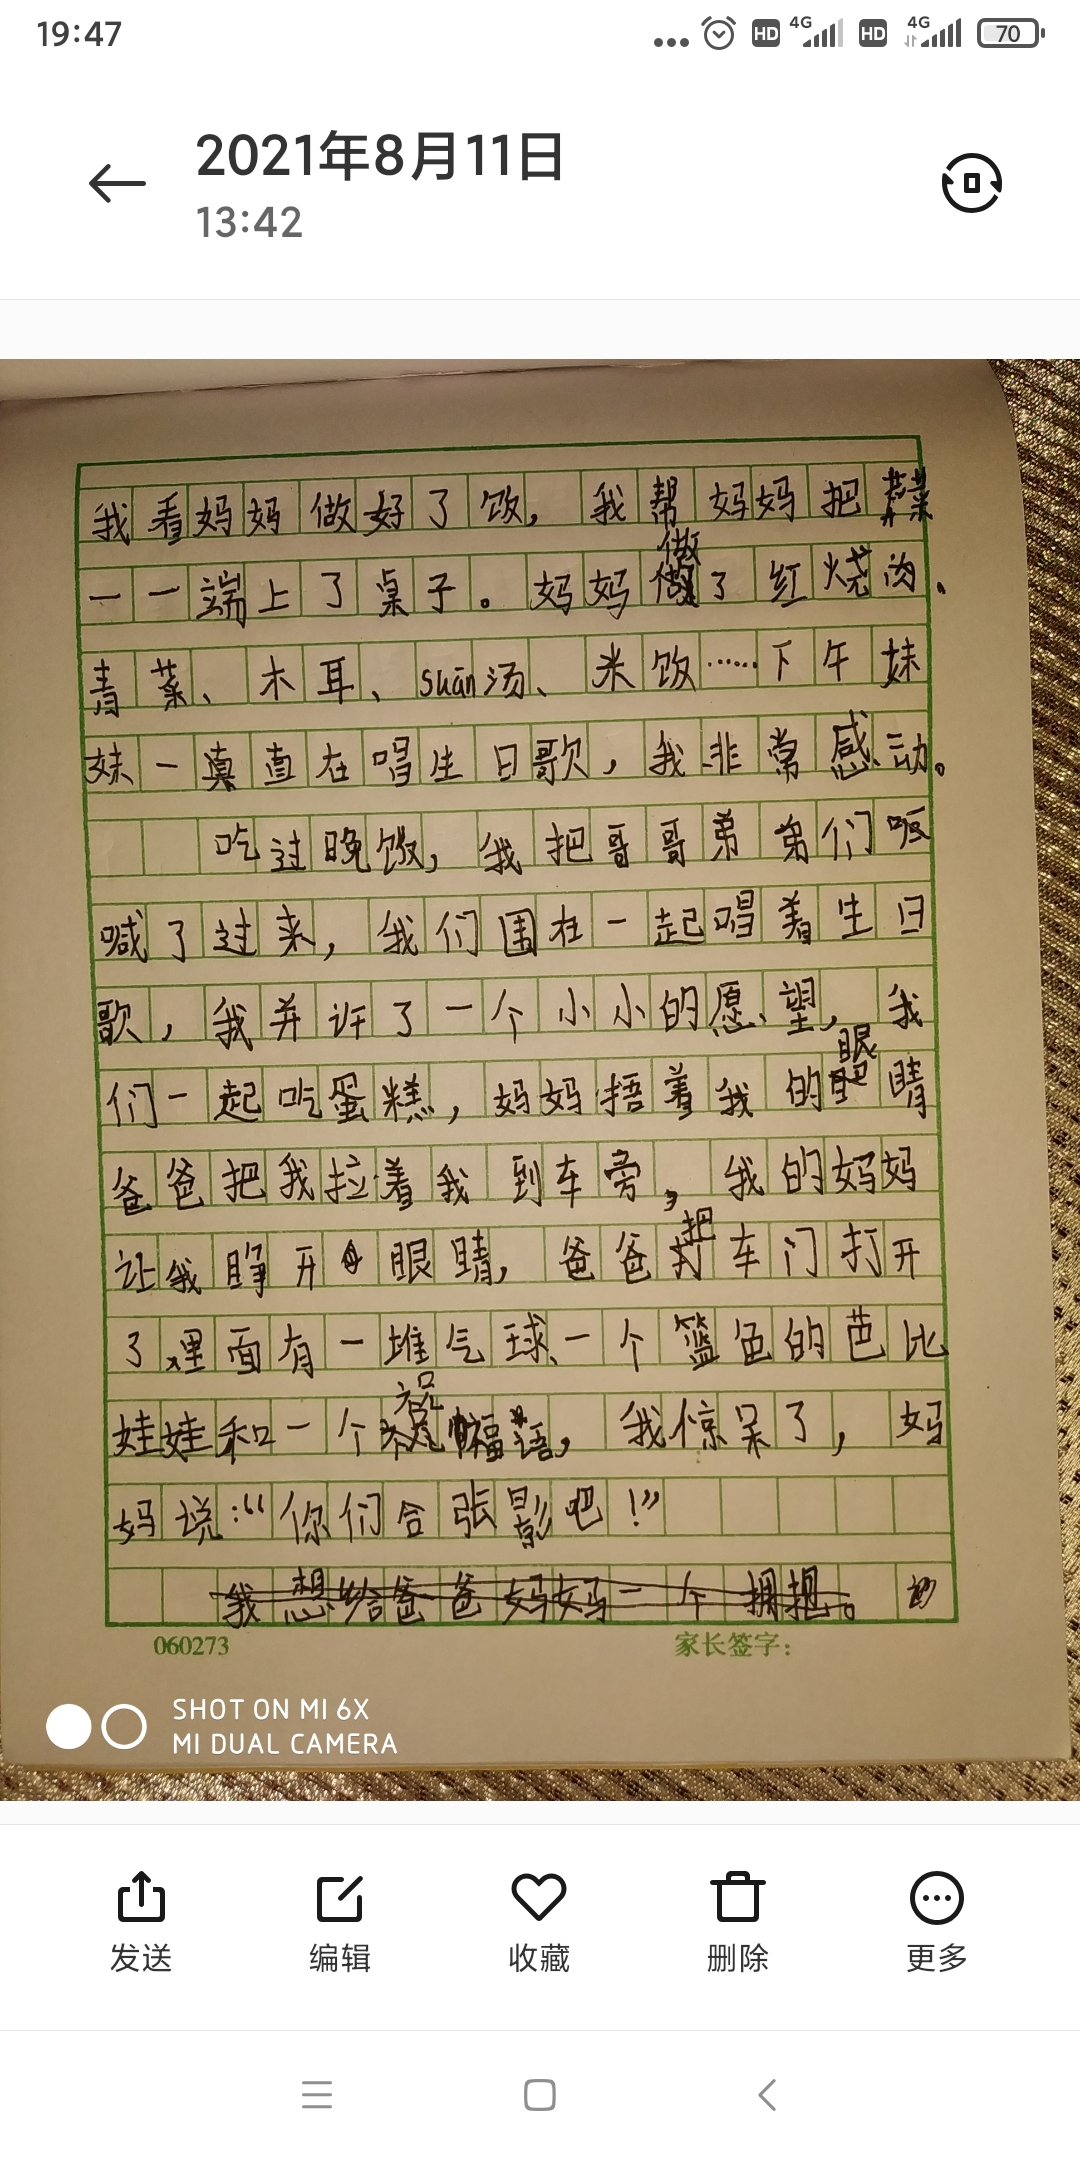 19:47
HD 4G HD 4G 70
2021年8月11日
13:42
我看妈妈做好了饭，我帮妈妈把菜
一一端上了桌子。妈妈做了红烧肉、
青菜、木耳、suān汤、米饭……下午妹
妹一真直在唱生日歌，我非常感动。
吃过晚饭，我把哥哥弟弟们
喊了过来，我们围在一起唱着生日
歌，我并许了一个小小的愿望，我
们一起吃蛋糕，妈妈捂着我的眼睛
爸爸把我拉着我到车旁，我的妈妈
让我睁开眼睛，爸爸把车门打开
了里面有一堆气球、一个篮色的芭比
娃娃和一个祝福语，我惊呆了，妈
妈说：“你们合张影吧！”
我想给爸爸妈妈一个拥抱。
060273
家长签字：
SHOT ON MI 6X
MI DUAL CAMERA
发送 编辑 收藏 删除 更多